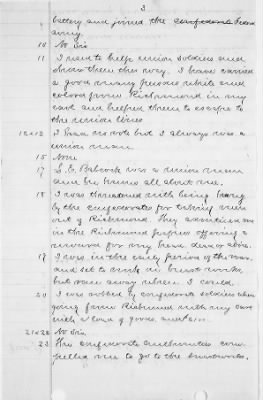 3
battery and joined the confederate
army.
10 No Sir
11 I used to help union soldiers and
show them the way. I have carried
a good many persons white and
colored from Richmond in my
cart and helped them to escape to
the union lines
12 & 13 I had no vote but I always was a
union man.
15 None
17 L. C. Babcock was a union man
and he knows all about me.
18 I was threatened with being hung
by the confederates for taking men
out of Richmond. They advertised me
in the Richmond papers offering a
reward for my head dead or alive.
19 I was in the early period of the war
and set to work on breast works
but ran away when I could.
20 I was robbed by confederate soldiers when
going from Richmond with my cart
with a load of goods
21 & 22 No Sir.
23 The confederate authorities com-
pelled me to go to the breastworks.